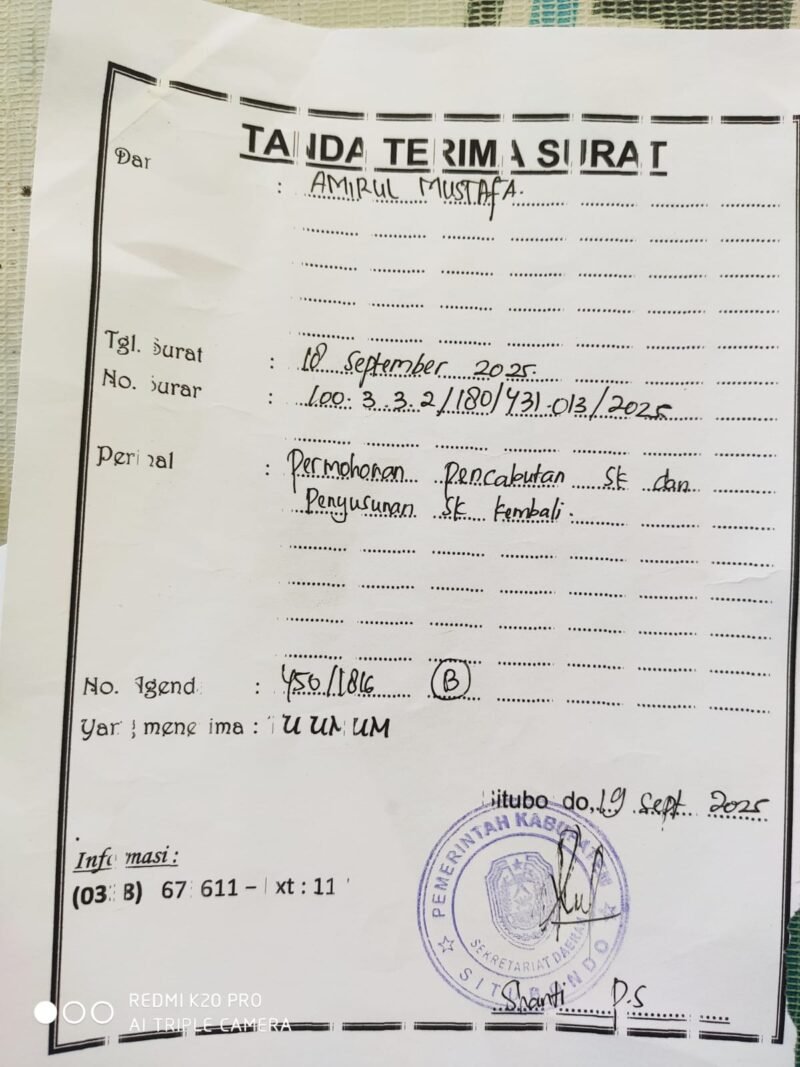 TANDA TERIMA SURAT
Dar : AMIRUL MUSTAFA.
Tgl. Surat : 18 September 2025.
No. Surar : 100.3.3.2/180/431.013/2025
Perihal : Permohonan pencabutan SK dan
Penyusunan SK kembali.
No. Agend : 450/1816 B
Yang menerima : TU UMUM
Situbo do, 19 Sept 2025
Informasi :
(03 8) 67 611 – Ext : 11
PEMERINTAH KABUPATEN
SEKRETARIAT DAERAH
SITUBONDO
Shanti D.S
REDMI K20 PRO
AI TRIPLE CAMERA